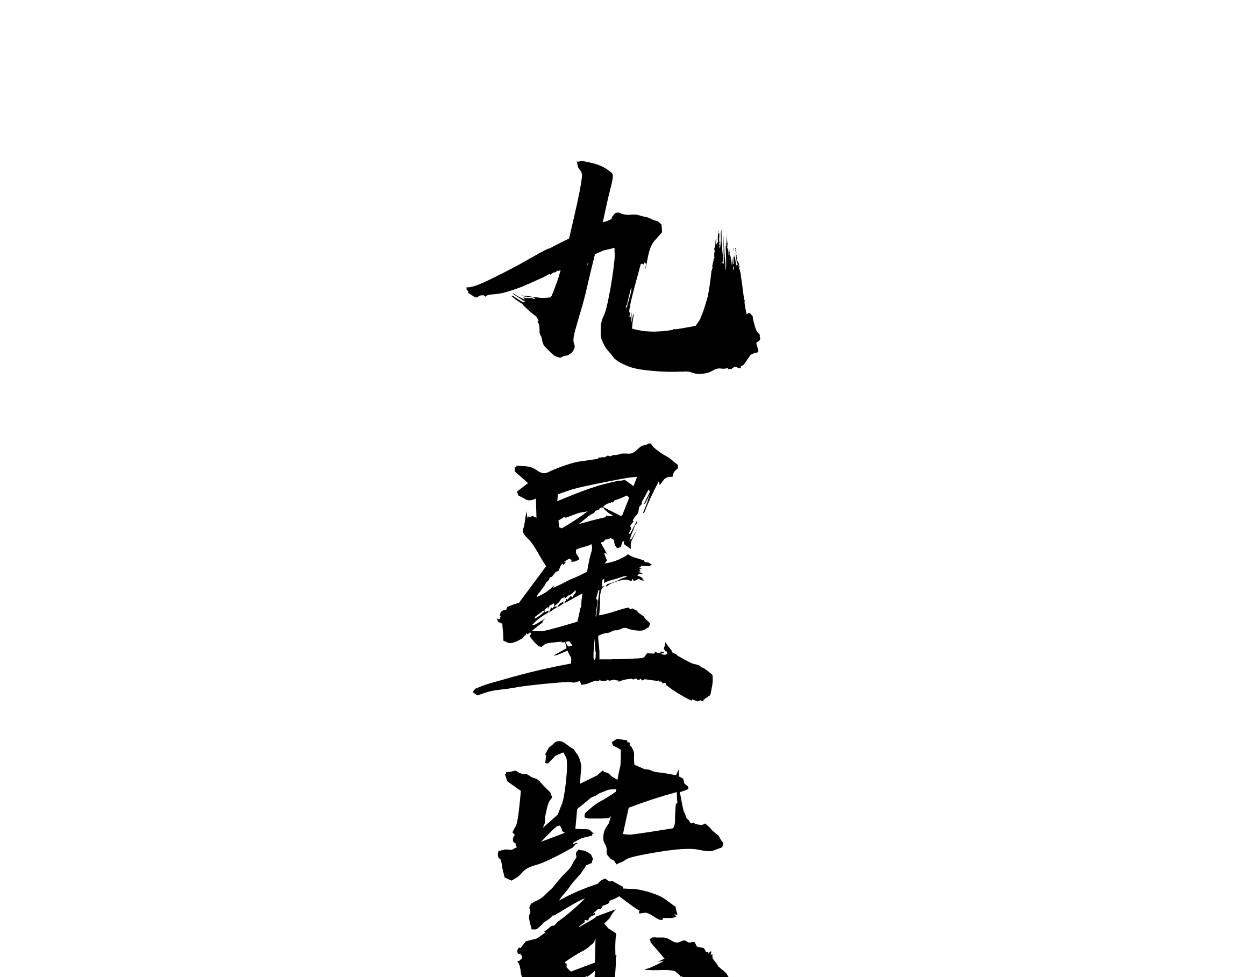 九星紫